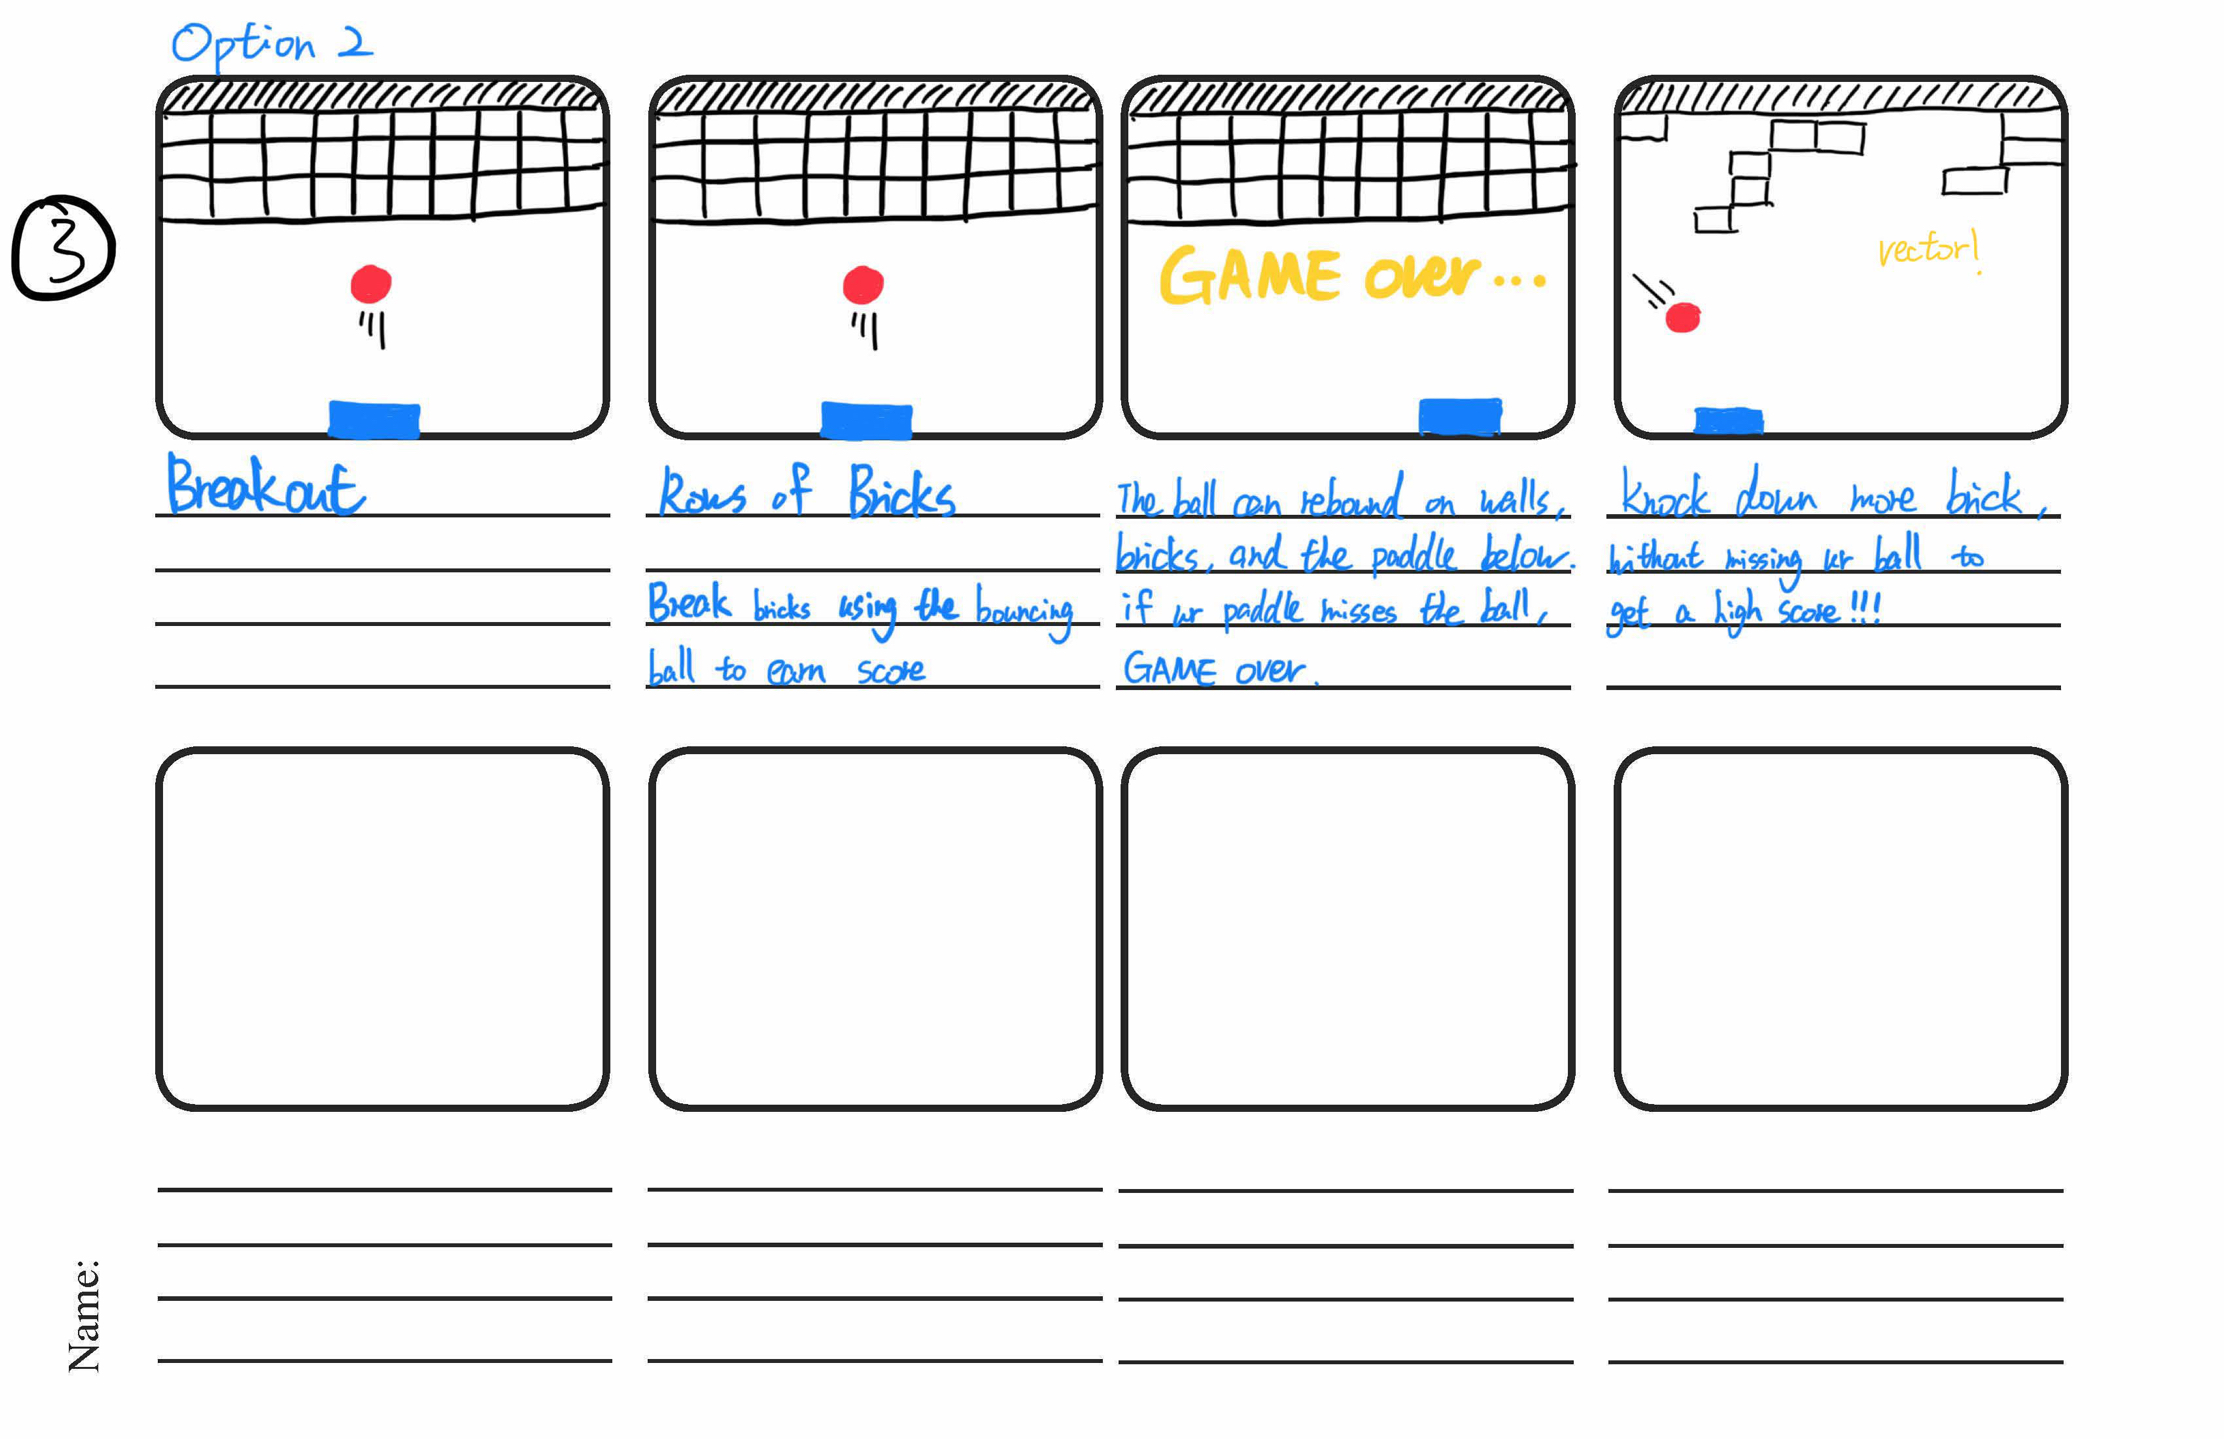 Option 2
3
GAME over...
vector!
Breakout
Rows of Bricks
Break bricks using the bouncing
ball to earn score
The ball can rebound on walls,
bricks, and the paddle below.
if ur paddle misses the ball,
GAME over.
Knock down more brick,
without missing ur ball to
get a high score!!!
Name: